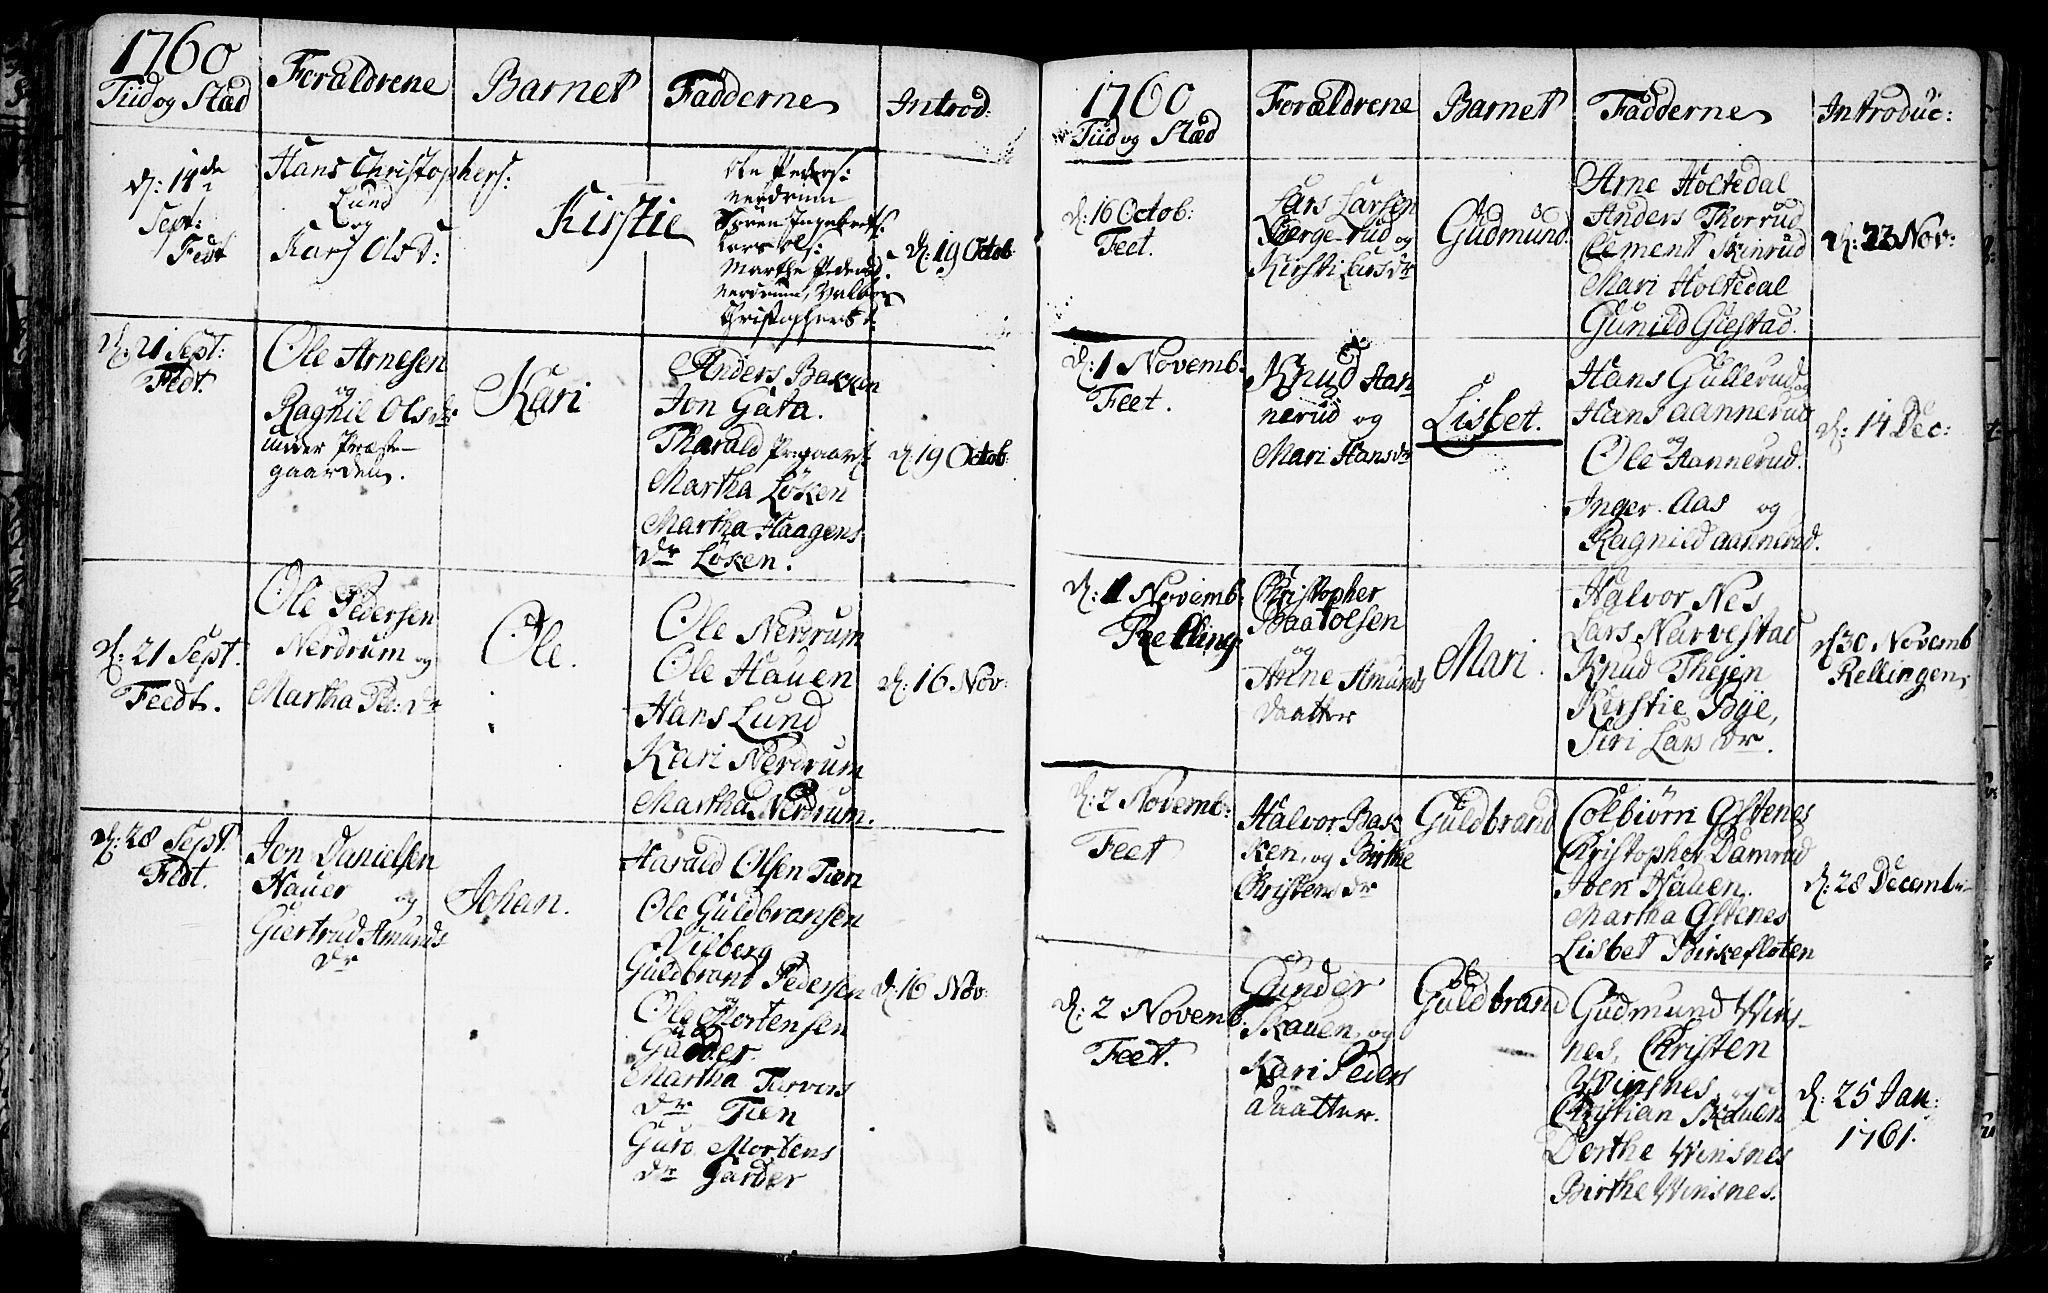 1760
Tiid og Stæd
Forældrene
Barnet
Fadderne
Introd:
d: 14de
Sept:
Fedt
Hans Christophers:
Lund
og
Kari Olsd:
Kirstie
Ole Peders:
Nerdrum
Søren Ingebrets:
Lars Ols:
Marthe Pedersd.
Nerdrum, Valbor
Christophersd:
d: 19 Octob:
d: 21 Sept:
Fedt.
Ole Arnesen
og
Ragnil Olsdr:
under Præste-
gaarden.
Kari
Anders Bakken
Jon Gata.
Tharald Prgaard
Martha Løken
Martha Haagens
dr Løken.
d: 19 Octob:
d: 21 Sept.
Feedt.
Ole Pedersen
Nerdrum og
Martha Ped: dr
Ole.
Ole Nerdrum
Ole Hauen
Hans Lund
Kari Nerdrum
Martha Nerdrum.
d: 16 Nov:
d: 28 Sept.
Fedt.
Jon Danielsen
Hauer og
Giertrud Amunds
dr
Johan.
Harald Olsen Tien
Ole Guldbransen
Vilberg
Guldbrand Pedersen
og
Ole Mortensen
Garder
Martha Tarvers
dr Tien
Guro Mortens
dr Garder
d: 16 Nov:
1760
Tiid og Stæd
Forældrene
Barnet
Fadderne
Introduc:
d: 16 Octob:
Feet.
Lars Larsen
Bierge-rud og
Kirsti Larsdr
Gudmund.
Arne Holtedal
Anders Thorrud
Clement Skinrud
Mari Holtedal
Gunild Giestad.
d: 23 Nov:
d: 1 Novemb.
Feet.
Knud Aan
nerud og
Mari Hansdr
Lisbet.
Hans Gullerud og
Hans aannerud
og
Ole Aannerud.
Inger Aas og
Ragnild aannerud.
d: 14 Dec:
d: 1 Novemb:
Relling
Christopher
Baatolsen
og
Anne Amunds
daatter
Mari.
Halvor Nes
Lars Narvestad
Knud Thejen
Kirstie Bye,
Siri Lars dr.
d 30 Novemb
Rellingen
d: 2 Novemb:
Feet
Halvor Bak
ken, og Birthe
Christens dr
Guldbrand
Colbiørn Østenes
Christopher Damrud
Joen Hauen.
Martha Østenes
Lisbet Birkefloten
d: 28 Decemb:
d: 2 Novemb.
Feet.
Gunder
Skauen, og
Kari Peders
daatter.
Guldbrand
Gudmund Wins-
nes, Christen
Winsnes, og
Christian Skauen
Dorthe Winsnes
Birthe Winsnes.
d: 25 Jan:
1761.